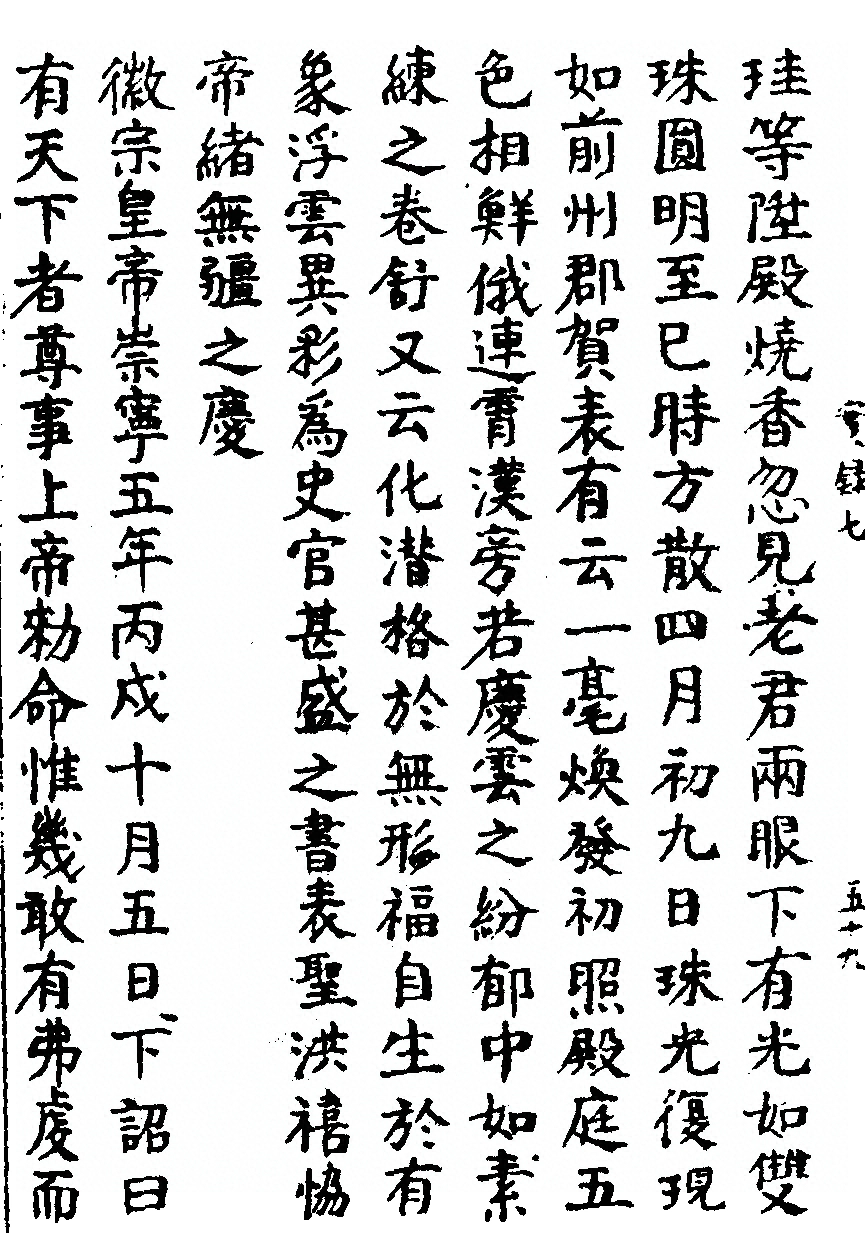 實錄七 五十九
珪等陞殿燒香忽見老君兩眼下有光如雙
珠圓明至巳時方散四月初九日珠光復現
如前州郡賀表有云一毫煥發初照殿庭五
色相鮮俄連霄漢旁若慶雲之紛郁中如素
練之卷舒又云化潛格於無形福自生於有
象浮雲異彩為史官甚盛之書表聖洪禧恊
帝緒無疆之慶
徽宗皇帝崇寧五年丙戌十月五日下詔曰
有天下者尊事上帝勑命惟幾敢有弗虔而